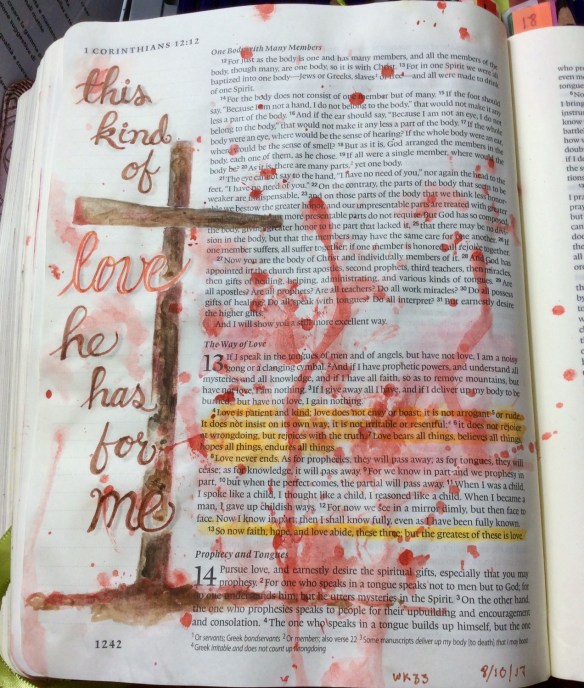 1 CORINTHIANS 12:12
this
kind
of
love
he
has
for
me
One Body with Many Members
12 For just as the body is one and has many members, and all the members of the
body, though many, are one body, so it is with Christ. 13 For in one Spirit we were all
baptized into one body—Jews or Greeks, slaves or free—and all were made to drink
of one Spirit.
14 For the body does not consist of one member but of many. 15 If the foot should
say, "Because I am not a hand, I do not belong to the body," that would not make it any
less a part of the body. 16 And if the ear should say, "Because I am not an eye, I do not
belong to the body," that would not make it any less a part of the body. 17 If the whole
body were an eye, where would be the sense of hearing? If the whole body were an ear,
where would be the sense of smell? 18 But as it is, God arranged the members in the
body, each one of them, as he chose. 19 If all were a single member, where would the
body be? 20 As it is, there are many parts, yet one body.
21 The eye cannot say to the hand, "I have no need of you," nor again the head to the
feet, "I have no need of you." 22 On the contrary, the parts of the body that seem to be
weaker are indispensable, 23 and on those parts of the body that we think less honor-
able we bestow the greater honor, and our unpresentable parts are treated with
more presentable parts do not require. But God has so composed
the body, giving greater honor to the part that lacked it, 25 that there may be no divi-
sion in the body, but that the members may have the same care for one another. 26 If
one member suffers, all suffer together; if one member is honored, all rejoice together.
27 Now you are the body of Christ and individually members of it. 28 And God has
appointed in the church first apostles, second prophets, third teachers, then miracles,
then gifts of healing, helping, administrating, and various kinds of tongues. 29 Are
all apostles? Are all prophets? Are all teachers? Do all work miracles? 30 Do all possess
gifts of healing? Do all speak with tongues? Do all interpret? 31 But earnestly desire
the higher gifts.
And I will show you a still more excellent way.
The Way of Love
13 If I speak in the tongues of men and of angels, but have not love, I am a noisy
gong or a clanging cymbal. 2 And if I have prophetic powers, and understand all
mysteries and all knowledge, and if I have all faith, so as to remove mountains, but
have not love, I am nothing. 3 If I give away all I have, and if I deliver up my body to be
burned, but have not love, I gain nothing.
4 Love is patient and kind; love does not envy or boast; it is not arrogant 5 or rude.
It does not insist on its own way; it is not irritable or resentful; 6 it does not rejoice
at wrongdoing, but rejoices with the truth. 7 Love bears all things, believes all things,
hopes all things, endures all things.
8 Love never ends. As for prophecies, they will pass away; as for tongues, they will
cease; as for knowledge, it will pass away. 9 For we know in part and we prophesy in
part, 10 but when the perfect comes, the partial will pass away. 11 When I was a child,
I spoke like a child, I thought like a child, I reasoned like a child. When I became a
man, I gave up childish ways. 12 For now we see in a mirror dimly, but then face to
face. Now I know in part; then I shall know fully, even as I have been fully known.
13 So now faith, hope, and love abide, these three; but the greatest of these is love.
Prophecy and Tongues
14 Pursue love, and earnestly desire the spiritual gifts, especially that you may
prophesy. 2 For one who speaks in a tongue speaks not to men but to God; for
no one understands him, but he utters mysteries in the Spirit. 3 On the other hand,
the one who prophesies speaks to people for their upbuilding and encouragement
and consolation. 4 The one who speaks in a tongue builds up himself, but the one
1 Or servants; Greek bondservants 2 Or members; also verse 22 3 Some manuscripts deliver up my body (to death) that I may boast
4 Greek irritable and does not count up wrongdoing
1242
WK 33
8/10/17
18